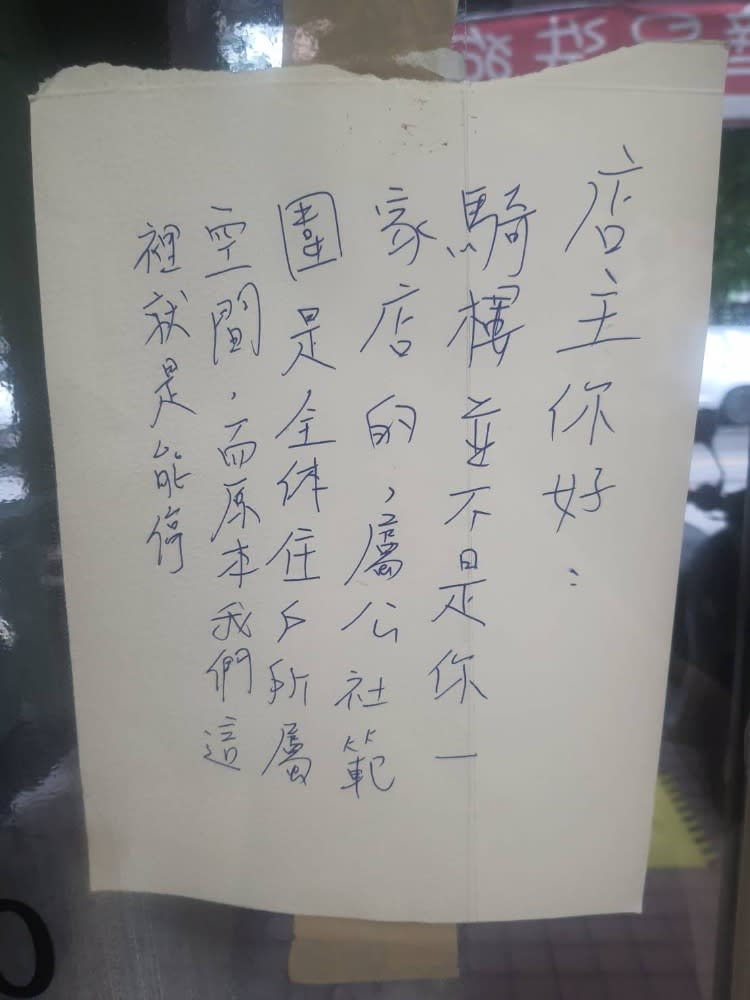 店主你好：
騎樓並不是你一
家店的，屬公社範
圍是全体住戶所屬
空間，而原本我們這
裡就是能停